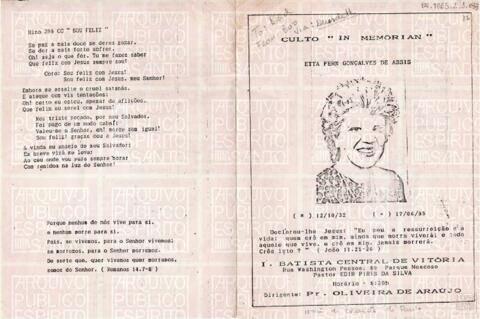 Hino 398 CC " SOU FELIZ "
Se paz a mais doce me deres gozar,
Se dor a mais forte sofrer,
Oh! seja o que fôr, Tu me fazes saber
Que feliz com Jesus sempre sou!
Coro: Sou feliz com Jesus,
Sou feliz com Jesus, meu Senhor!
Embora me assalte o cruel satanás,
E ataque com vis tentações;
Oh! certo eu estou, apesar de aflições,
Que feliz eu serei com Jesus!
Meu triste pecado, por meu Salvador,
Foi pago de um modo cabal;
Valeu-me o Senhor, oh! mercê sem igual!
Sou feliz! graças dou a Jesus!
A vinda eu anseio do meu Salvador:
Em breve virá me levar
Ao céu onde vou para sempre morar
Com remidos na luz do Senhor!
Porque nenhum de nós vive para si,
e nenhum morre para si.
Pois, se vivemos, para o Senhor vivemos;
se morremos, para o Senhor morremos.
De sorte que, quer vivamos quer morramos,
somos do Senhor. ( Romanos 14.7-8 )
CULTO " IN MEMORIAN "
ETTA FERN GONÇALVES DE ASSIS
( * ) 12/10/32 ( + ) 17/06/85
Declarou-lhe Jesus: "Eu sou a ressurreição e a
vida; quem crê em mim, ainda que morra viverá; e todo
aquele que vive, e crê em mim, jamais morrerá.
Crês isto ? " ( João 11.25-26 )
I. BATISTA CENTRAL DE VITÓRIA
Rua Washington Pessoa, 80 Parque Moscoso
Pastor EDIR PIRES DA SILVA
Horário -
Dirigente: Pr. OLIVEIRA DE ARAÚJO